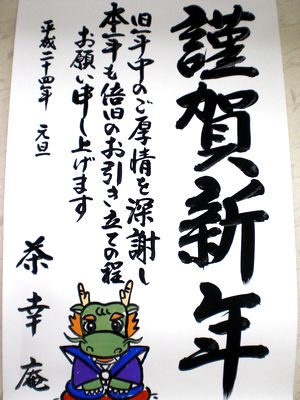 謹賀新年
旧年中のご厚情を深謝し
本年も倍旧のお引き立ての程
お願い申し上げます
平成二十四年 元旦
茶幸庵